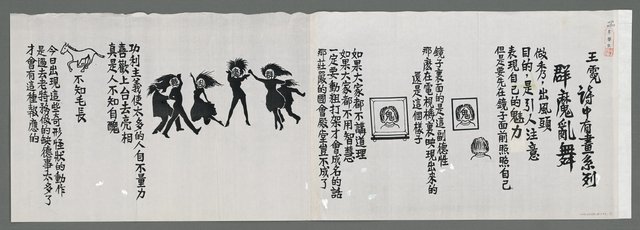 王霓詩中有畫系列
群魔亂舞
做秀,出風頭
目的,是引人注意
表現自己的魅力
但是要先在鏡子面前照照自己
鬼
鏡子裏面的是這副德性
那麼在電視機裏映現出來的
還是這個樣子
鬼
如果大家都不講道理
如果大家都不用智慧
一定要動粗打架才會成名的話
那莊嚴的國會殿堂豈不成了
功利主義使太多的人自不量力
喜歡上台去亮相
真是人不知自醜
不知毛長
今日出現這些奇形怪狀的動作
是過去老特務做的缺德事太多了
才會有這種報應的